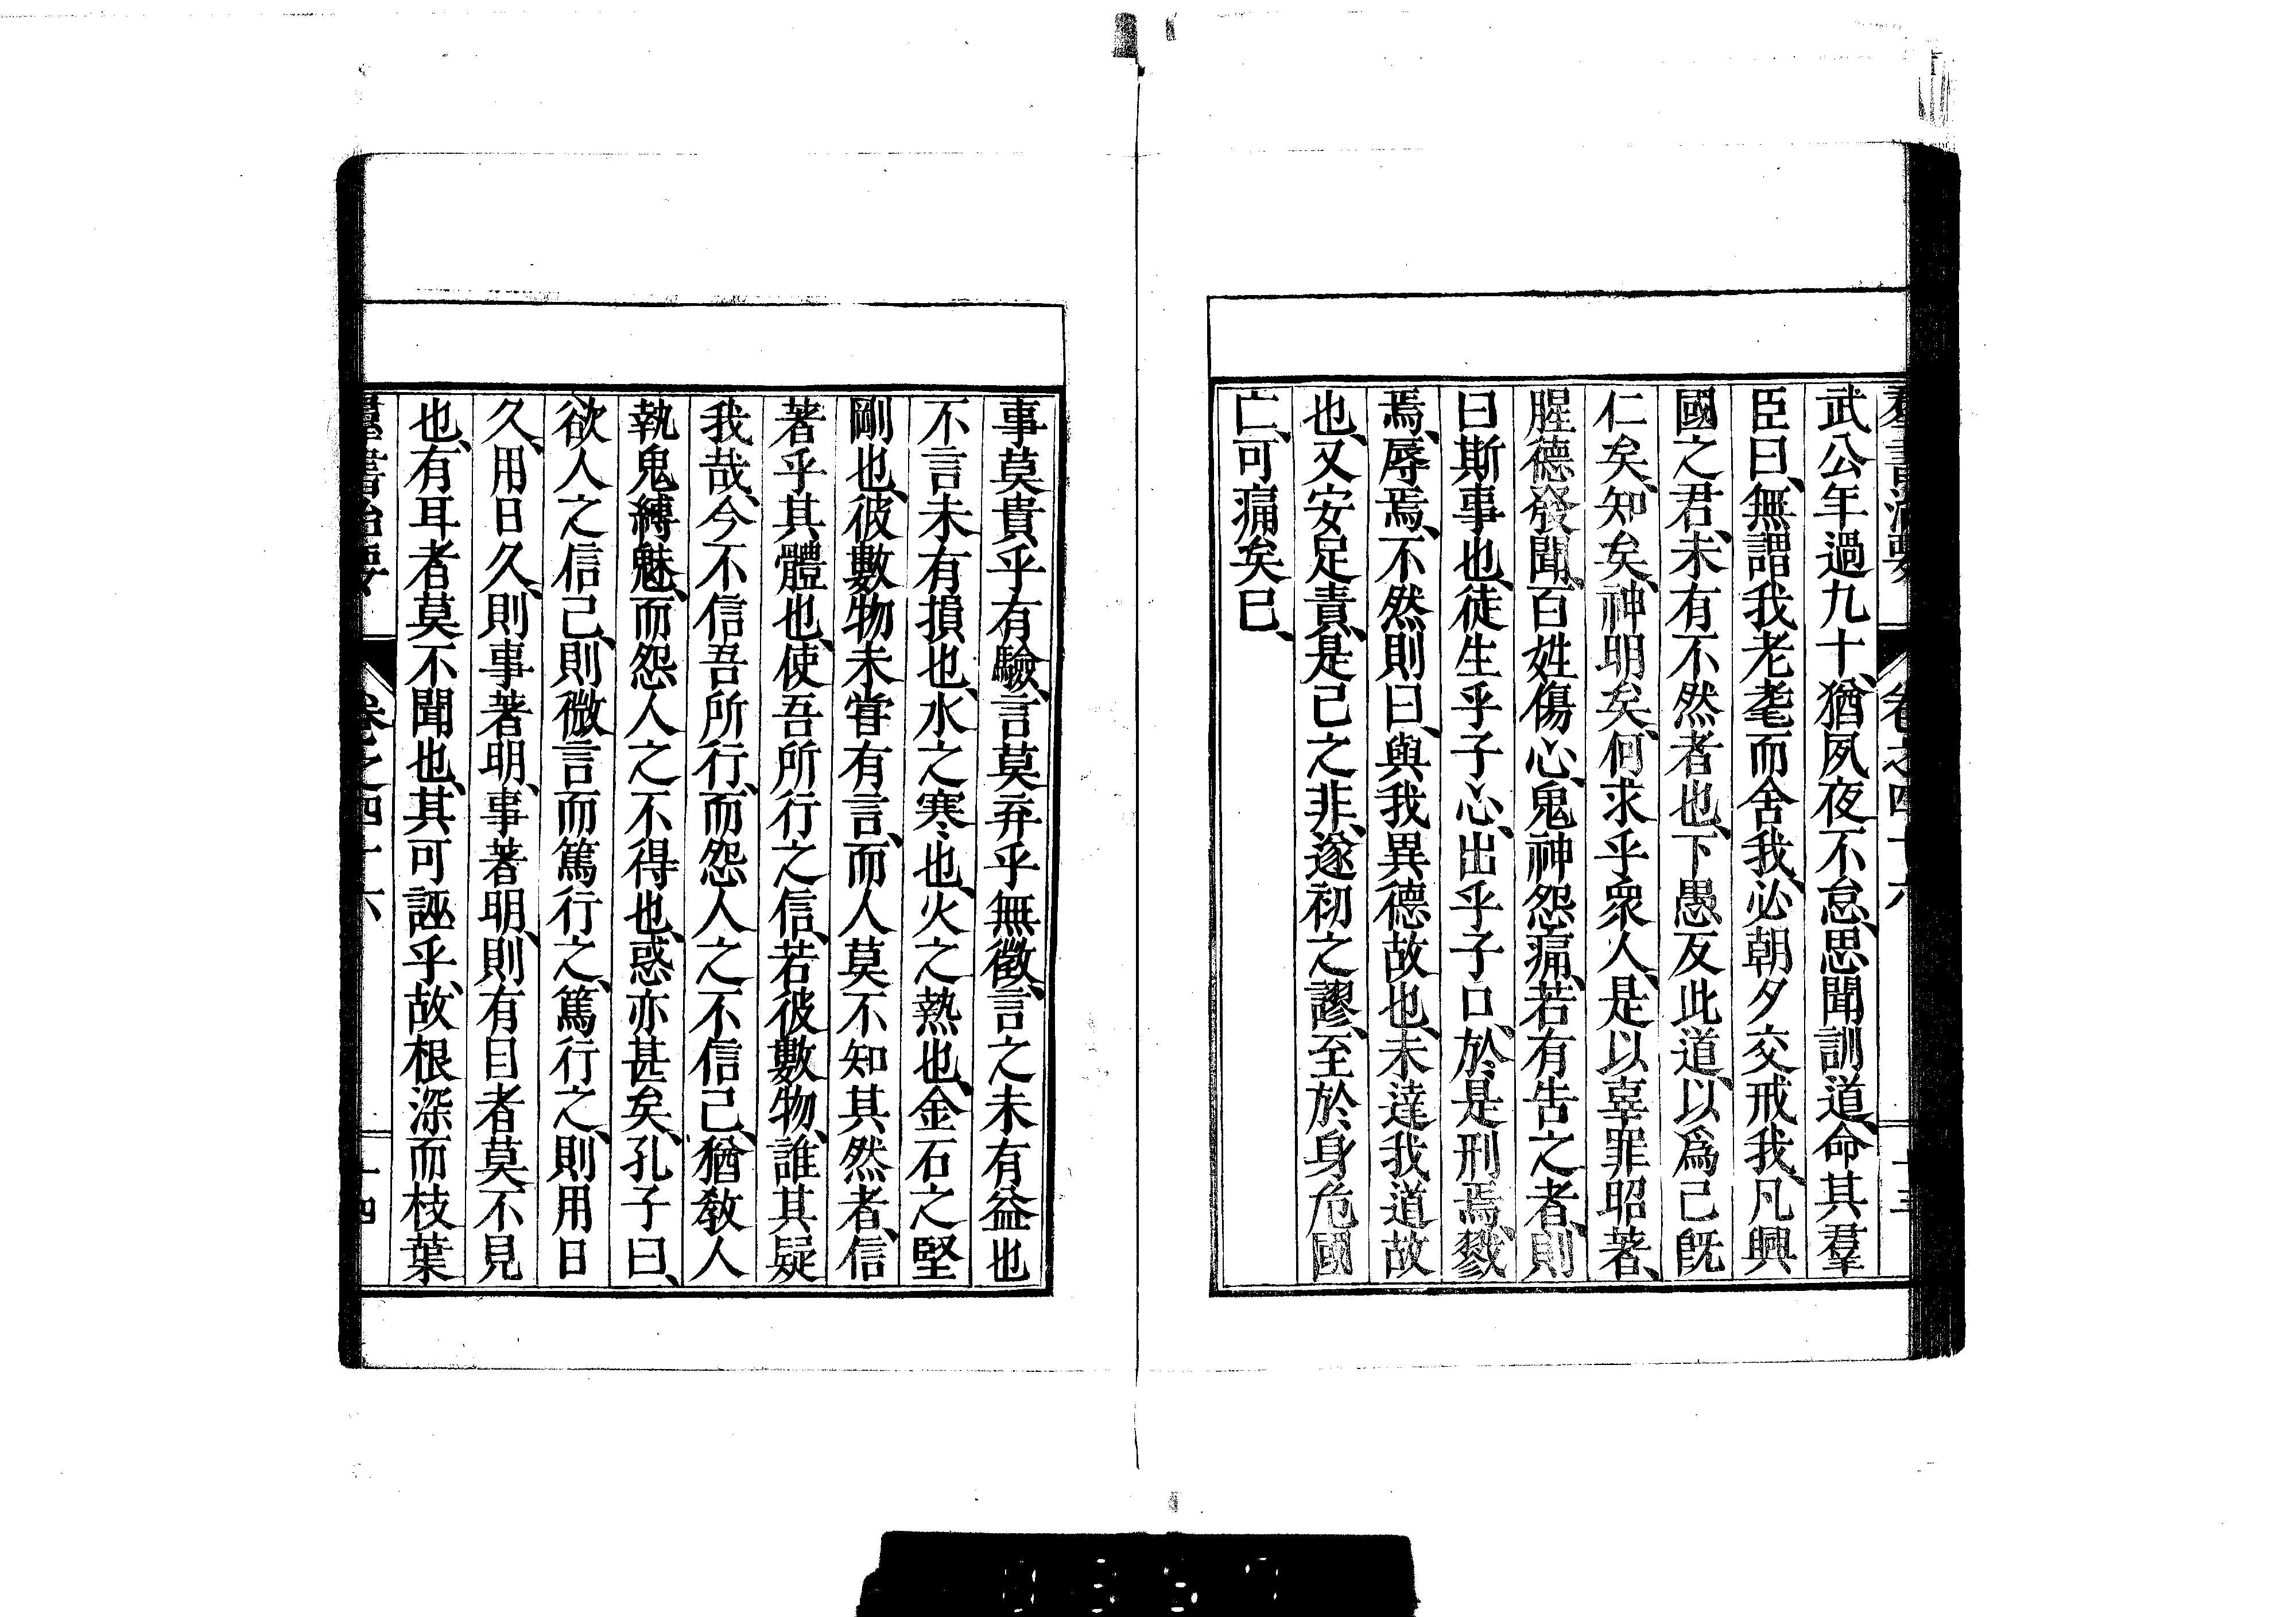 羣書治要 卷之四十六 十三
武公年過九十、猶夙夜不怠、思聞訓道、命其羣
臣曰、無謂我老耄而舍我、必朝夕交戒我、凡興
國之君、未有不然者也、下愚反此道、以爲己既
仁矣、知矣、神明矣、何求乎衆人、是以辜罪昭著、
腥德發聞、百姓傷心、鬼神怨痛、若有告之者、則
曰斯事也、徒生乎子心、出乎子口、於是刑焉、戮
焉、辱焉、不然則曰、與我異德故也、未達我道故
也、又安足責、是己之非、遂初之謬、至於身危國
亡、可痛矣已、
事莫貴乎有驗、言莫弃乎無徵、言之未有益也
不言未有損也、水之寒也、火之熱也、金石之堅
剛也、彼數物未甞有言、而人莫不知其然者、信
著乎其體也、使吾所行之信、若彼數物、誰其疑
我哉、今不信吾所行、而怨人之不信己、猶教人
執鬼縛魅、而怨人之不得也、惑亦甚矣、孔子曰、
欲人之信己、則微言而篤行之、篤行之、則用日
久、用日久、則事著明、事著明、則有目者莫不見
也、有耳者莫不聞也、其可誣乎、故根深而枝葉
羣書治要 卷之四十六 十四